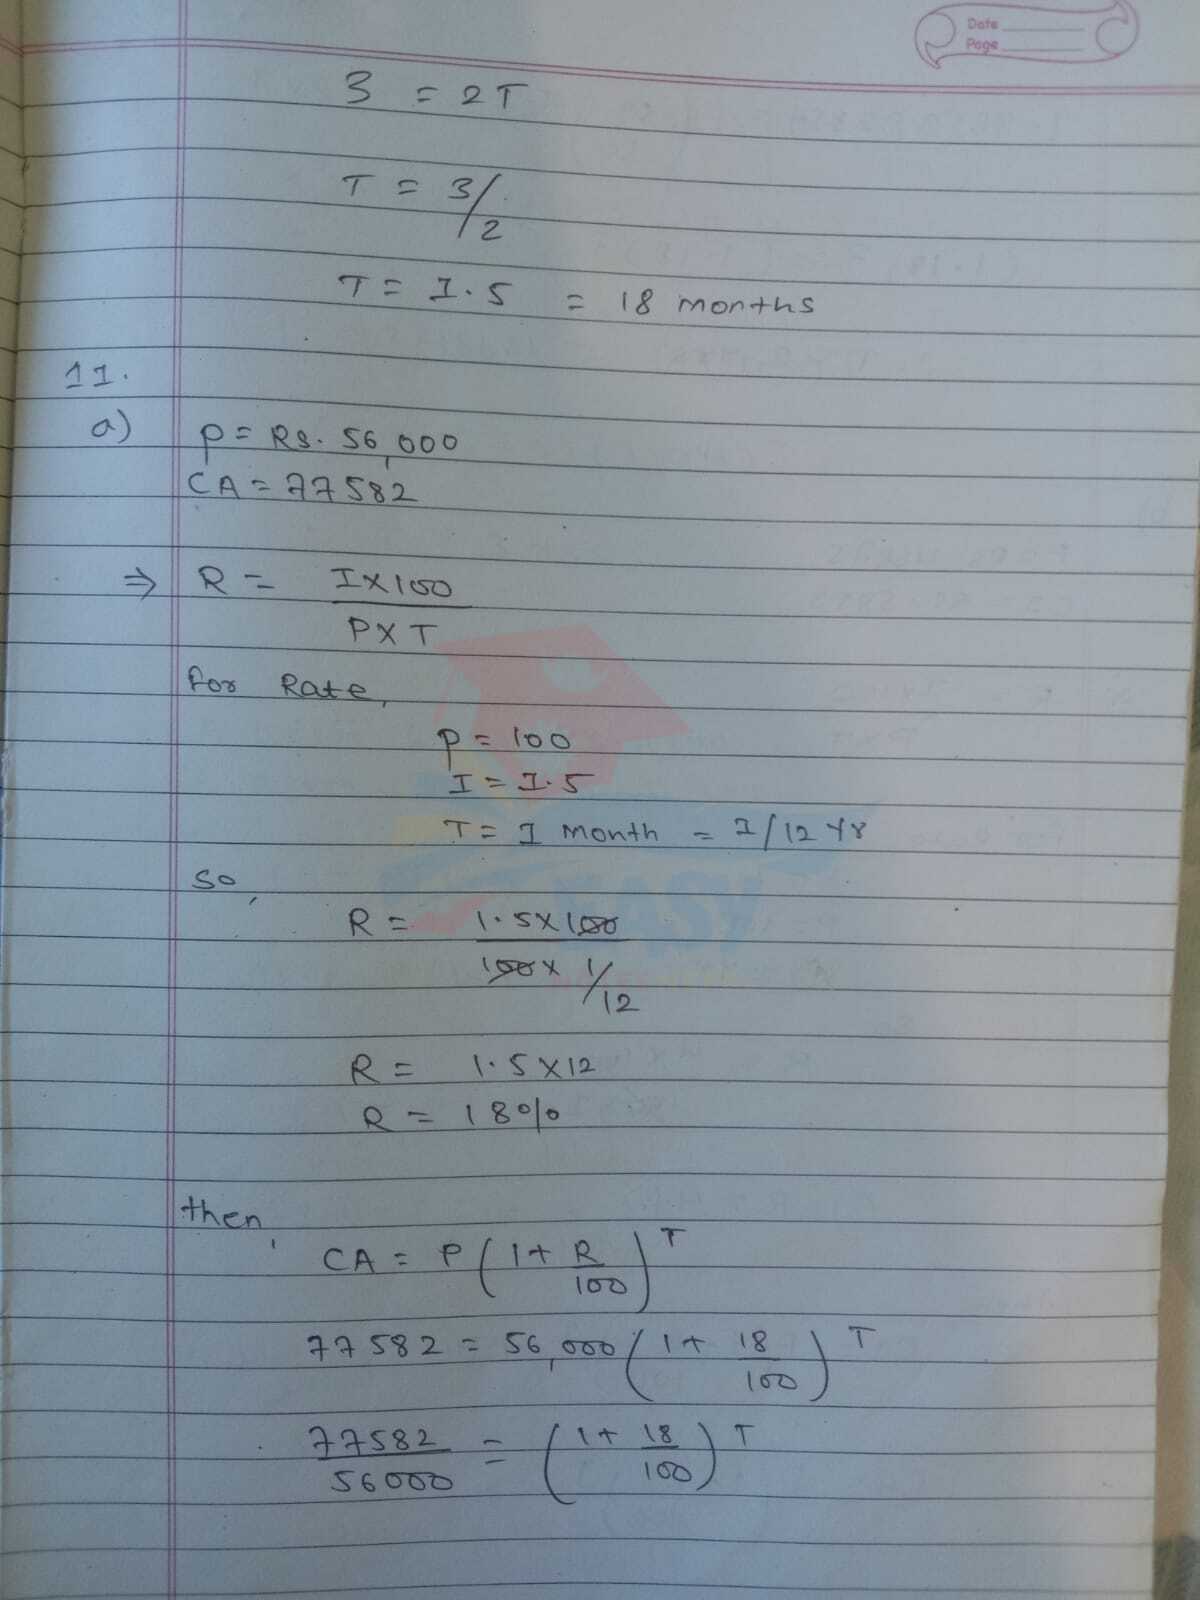 Date
Page
3 = 2T
T = 3/2
T = 1.5 = 18 months
11.
a) P = Rs. 56,000
CA = 77582
⇒ R = I×100
P×T
for Rate,
P = 100
I = 1.5
T = 1 month = 1/12 Yr
so,
R = 1.5×100
100× 1/12
R = 1.5×12
R = 18%
then,
CA = P(1+ R/100)^T
77582 = 56,000(1+ 18/100)^T
77582/56000 = (1+ 18/100)^T
EASY